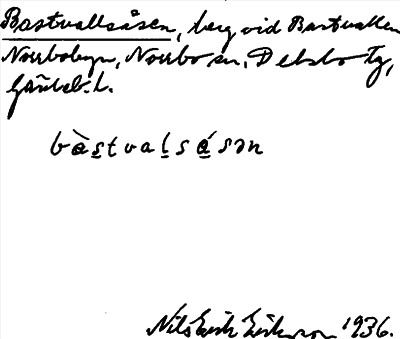 Bastvallsåsen, berg vid Bastvallen
Norrbobyn, Norrbo sn, Delsbo tg,
Gävleb. l.
bàstvalsásən
Nils Erik Eriksson 1936.